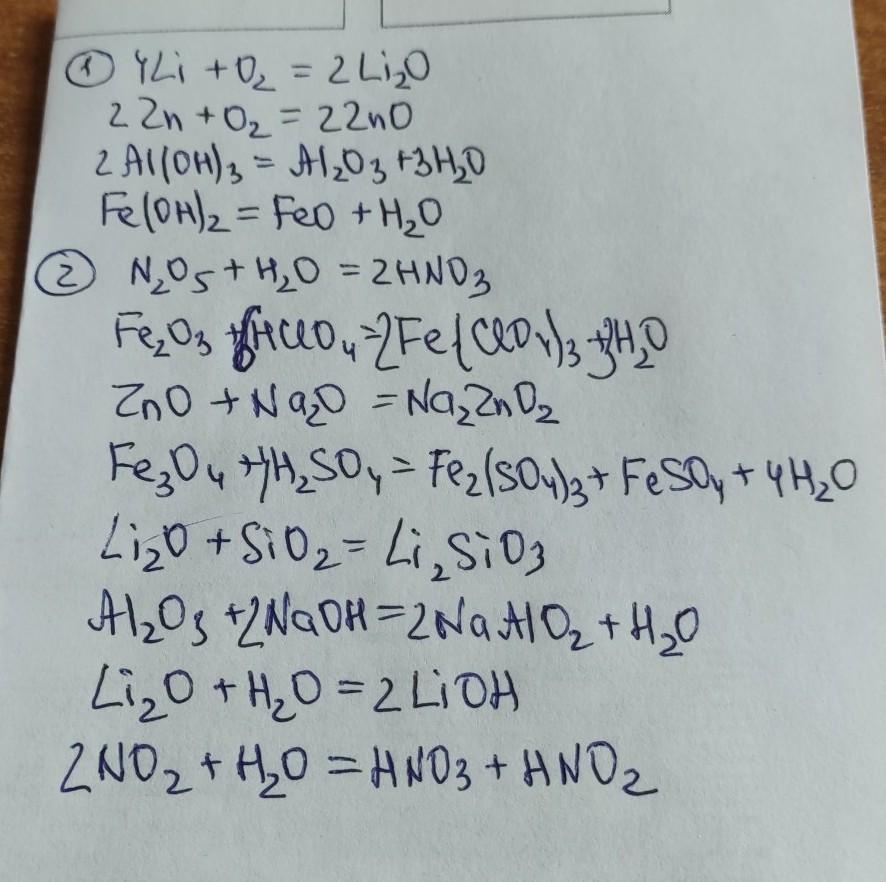 ① 4Li + O₂ = 2Li₂O
2Zn + O₂ = 2ZnO
2Al(OH)₃ = Al₂O₃ + 3H₂O
Fe(OH)₂ = FeO + H₂O
② N₂O₅ + H₂O = 2HNO₃
Fe₂O₃ + 6HClO₄ = 2Fe(ClO₄)₃ + 3H₂O
ZnO + Na₂O = Na₂ZnO₂
Fe₃O₄ + 4H₂SO₄ = Fe₂(SO₄)₃ + FeSO₄ + 4H₂O
Li₂O + SiO₂ = Li₂SiO₃
Al₂O₃ + 2NaOH = 2NaAlO₂ + H₂O
Li₂O + H₂O = 2LiOH
2NO₂ + H₂O = HNO₃ + HNO₂